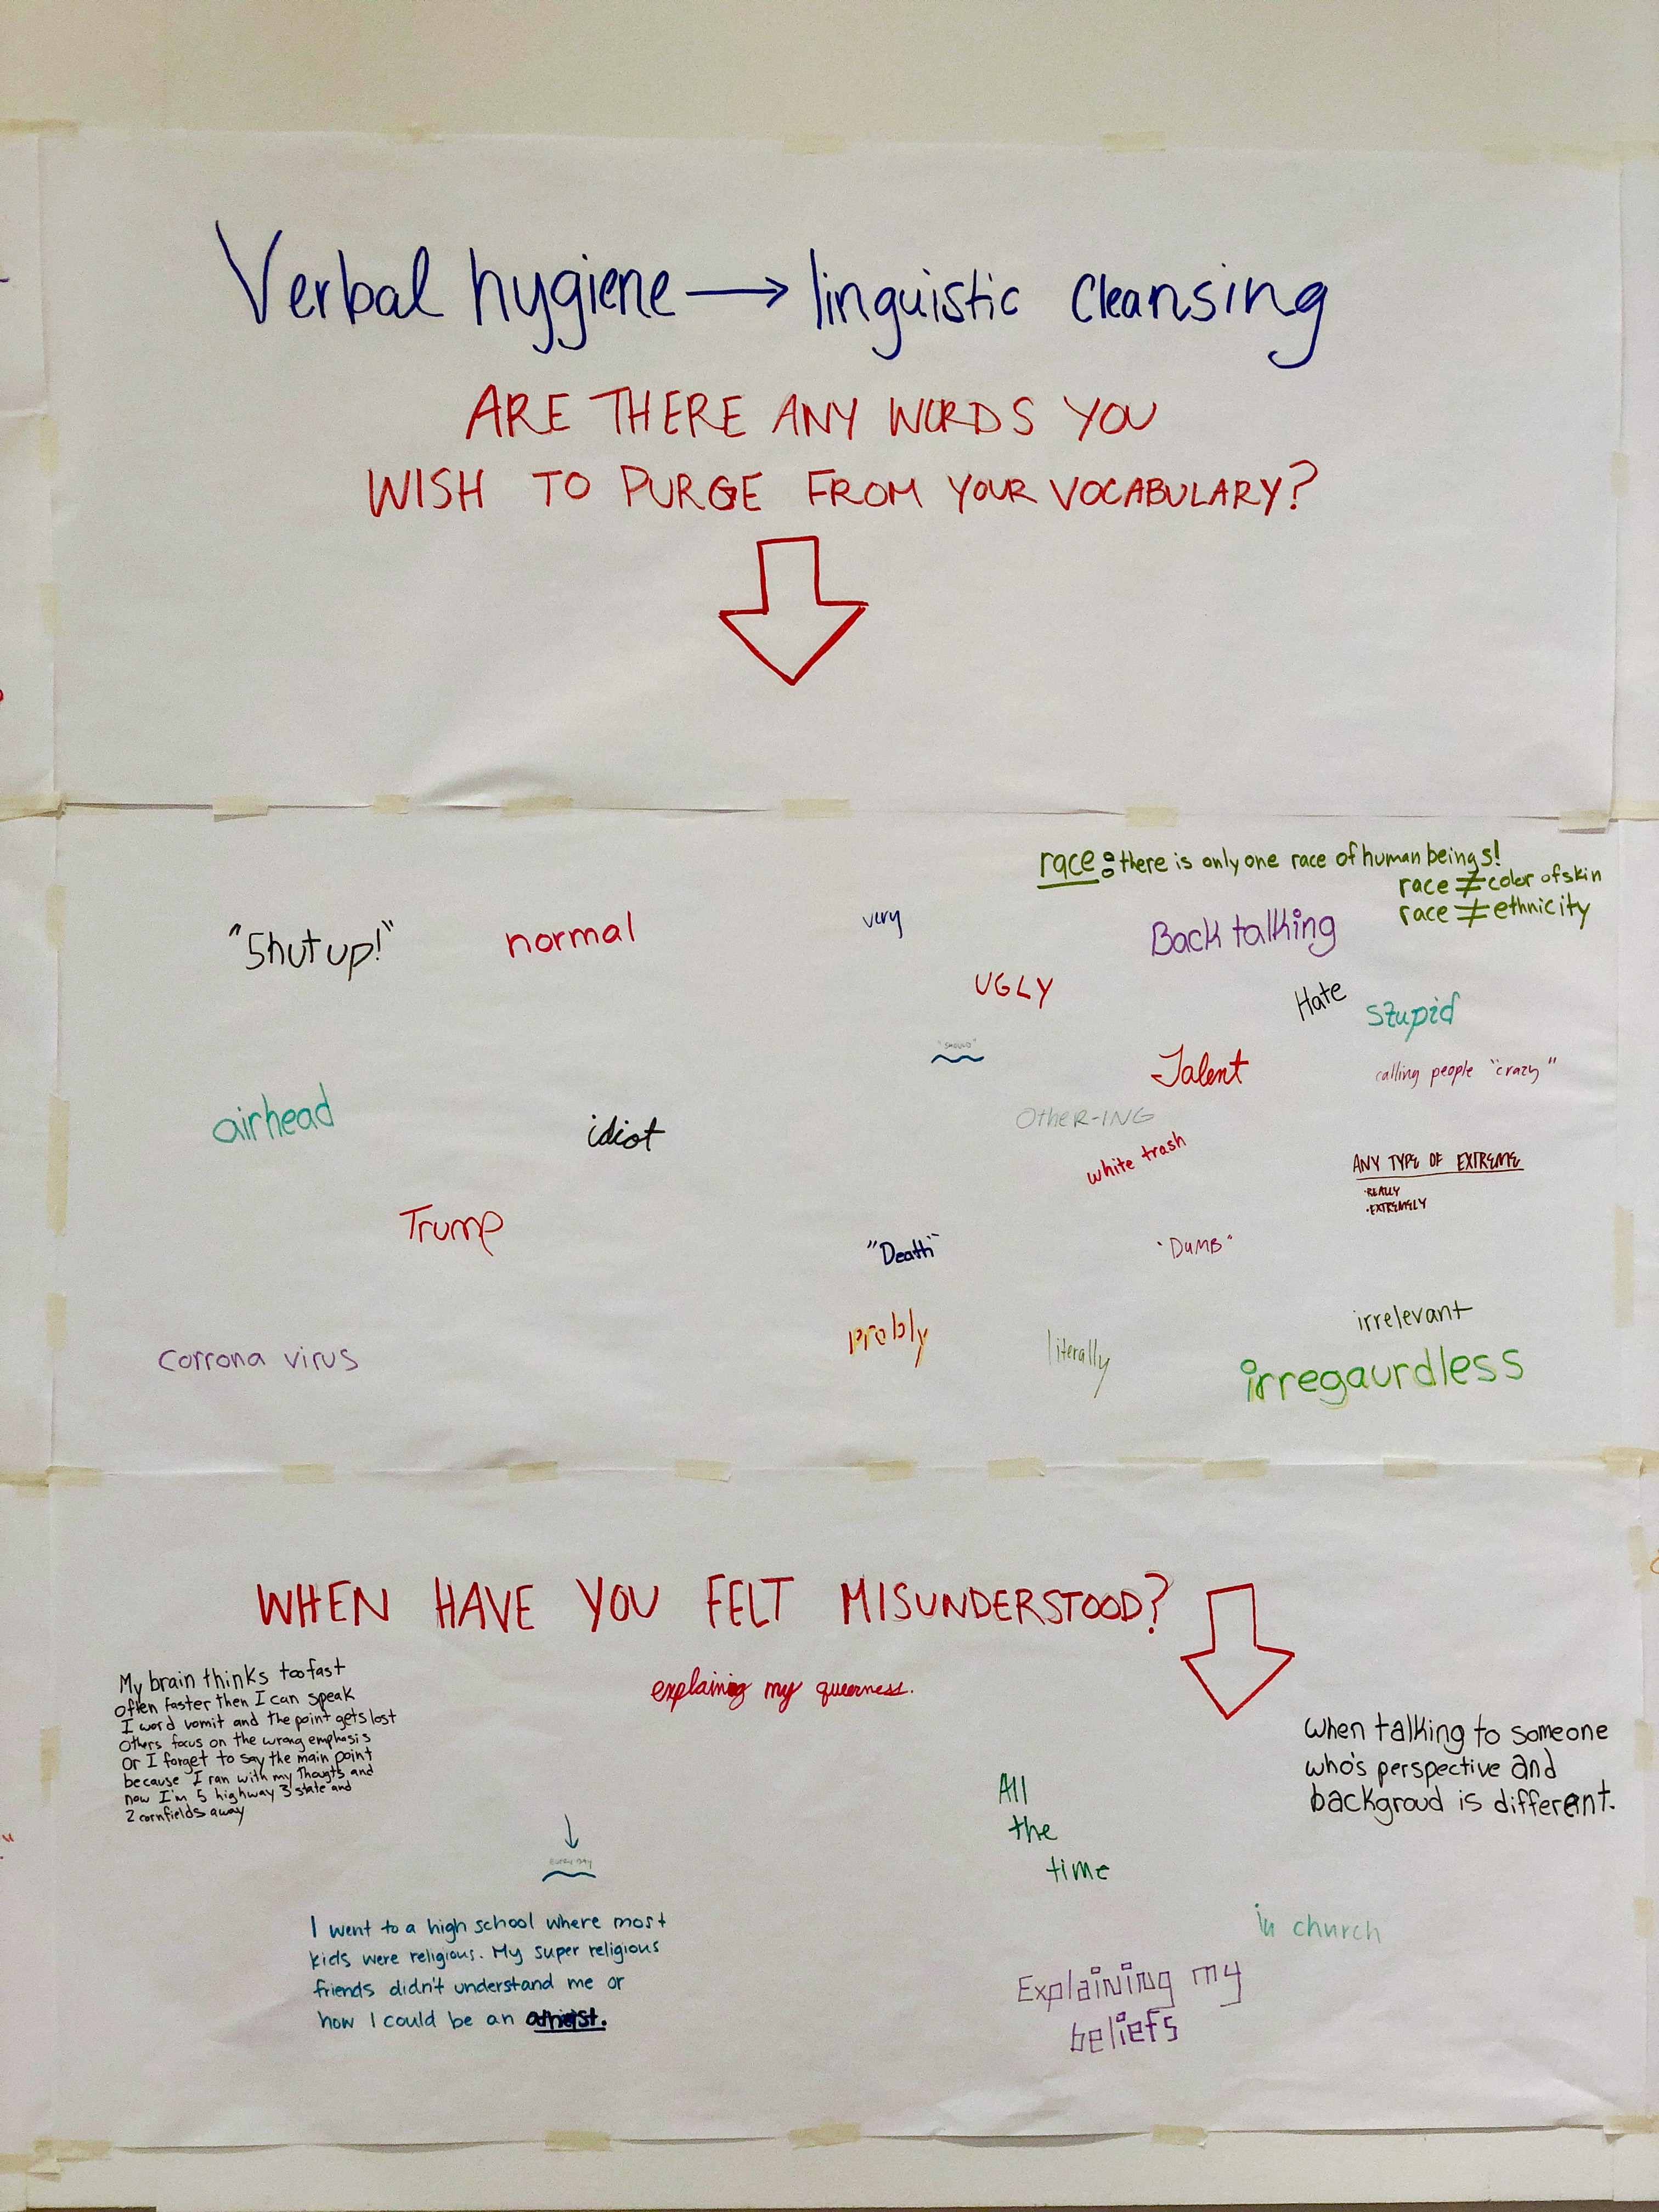 Verbal hygiene → linguistic cleansing
ARE THERE ANY WORDS YOU
WISH TO PURGE FROM YOUR VOCABULARY?
race: there is only one race of human beings!
race ≠ color of skin
race ≠ ethnicity
"Shut up!"
normal
very
Back talking
UGLY
Hate
stupid
"SHOULD"
Talent
calling people "crazy"
airhead
idiot
OtheR-ING
white trash
ANY TYPE OF EXTREME
·REALLY
·EXTREMELY
Trump
"Death"
"DUMB"
probly
literally
irrelevant
irregaurdless
corrona virus
WHEN HAVE YOU FELT MISUNDERSTOOD?
My brain thinks too fast
often faster then I can speak
I word vomit and the point gets lost
Others focus on the wrong emphasis
Or I forget to say the main point
because I ran with my thougts and
now I'm 5 highway 3 state and
2 cornfields away
explaining my queerness.
when talking to someone
who's perspective and
backgroud is different.
All
the
time
EVERY DAY
I went to a high school where most
kids were religious. My super religious
friends didn't understand me or
how I could be an atheist.
in church
Explaining my
beliefs